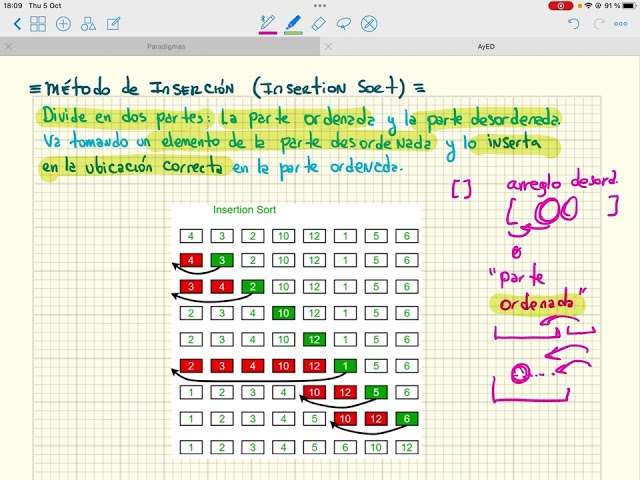 18:09 Thu 5 Oct
91 %
Paradigmas
AyED
= Método de Inserción (Insertion Sort) =
Divide en dos partes: La parte ordenada y la parte desordenada
Va tomando un elemento de la parte desordenada y lo inserta
en la ubicación correcta en la parte ordenada.
[ ] arreglo desord.
[ ]
"parte
ordenada"
Insertion Sort
4 3 2 10 12 1 5 6
4 3 2 10 12 1 5 6
3 4 2 10 12 1 5 6
2 3 4 10 12 1 5 6
2 3 4 10 12 1 5 6
2 3 4 10 12 1 5 6
1 2 3 4 10 12 5 6
1 2 3 4 5 10 12 6
1 2 3 4 5 6 10 12